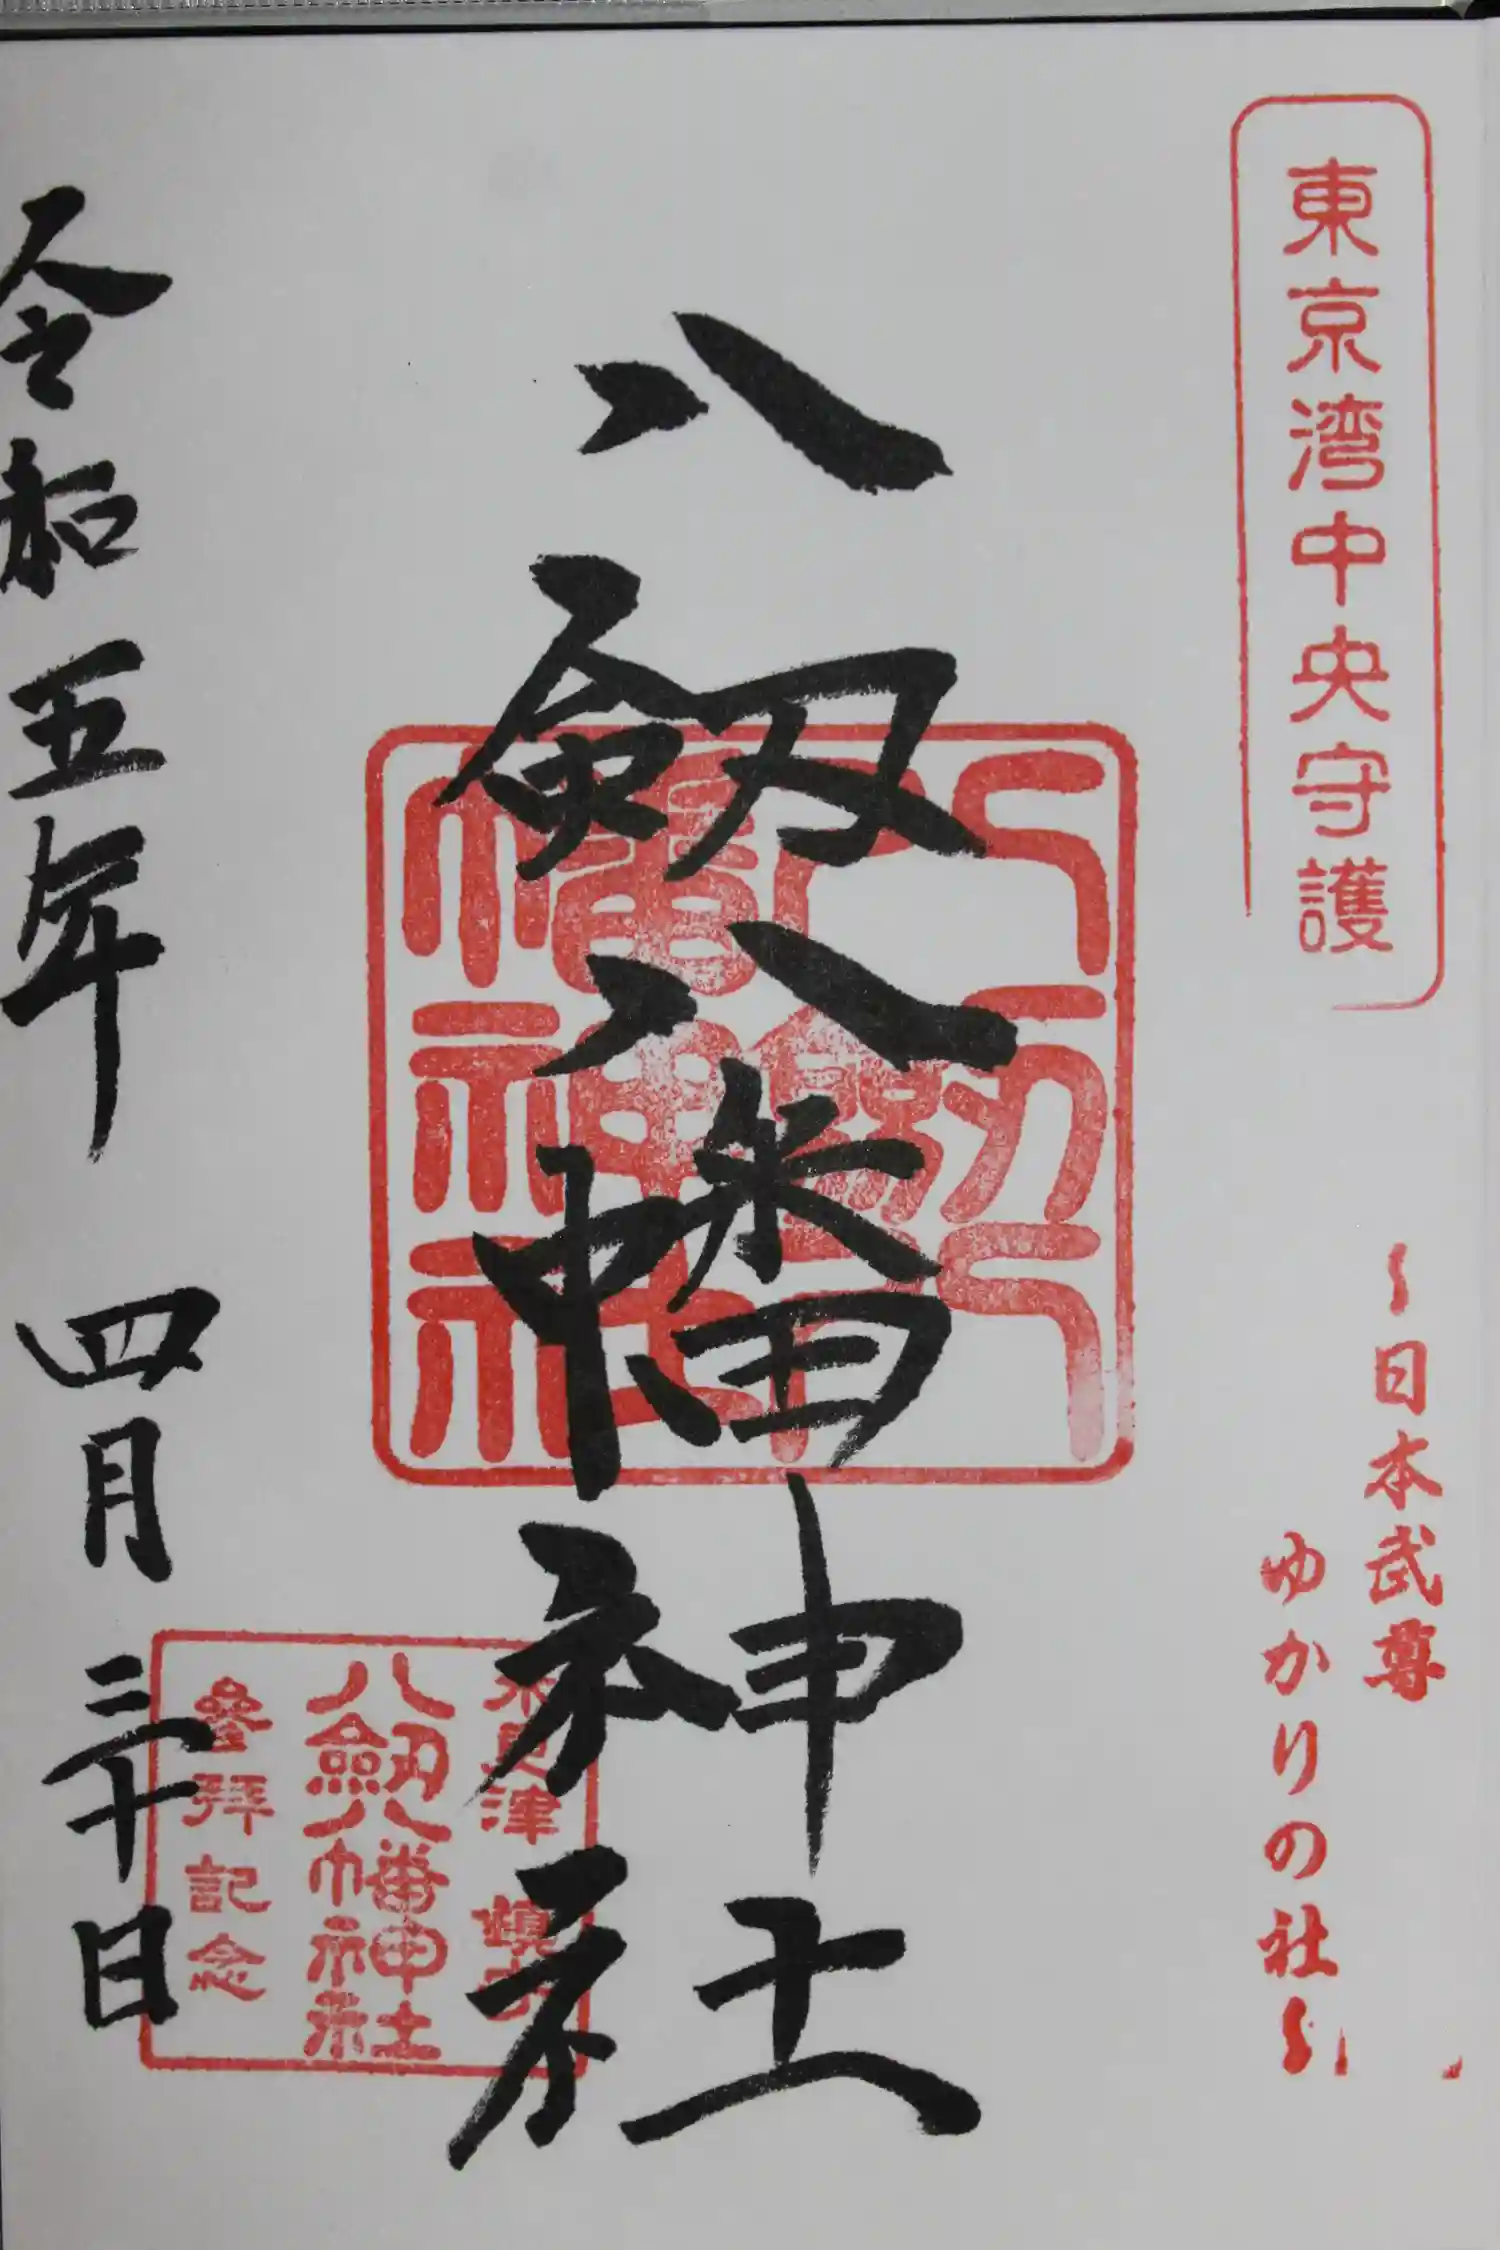 東京湾中央守護
〜日本武尊
ゆかりの社〜
八剱八幡神社
八剱八幡神社
木更津 鎮守
八劔八幡神社
参拜記念
令和五年 四月 三十日